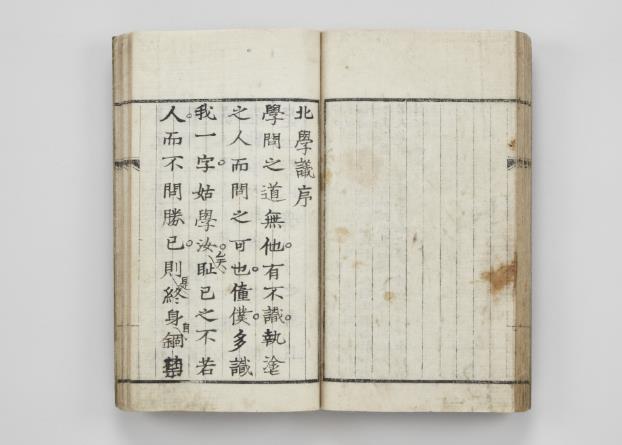 北學議序
學問之道無他。有不識。執塗
之人而問之可也。僮僕。多識
我一字。姑學汝矣。恥己之不若
人。而不問勝己。則是終身自錮